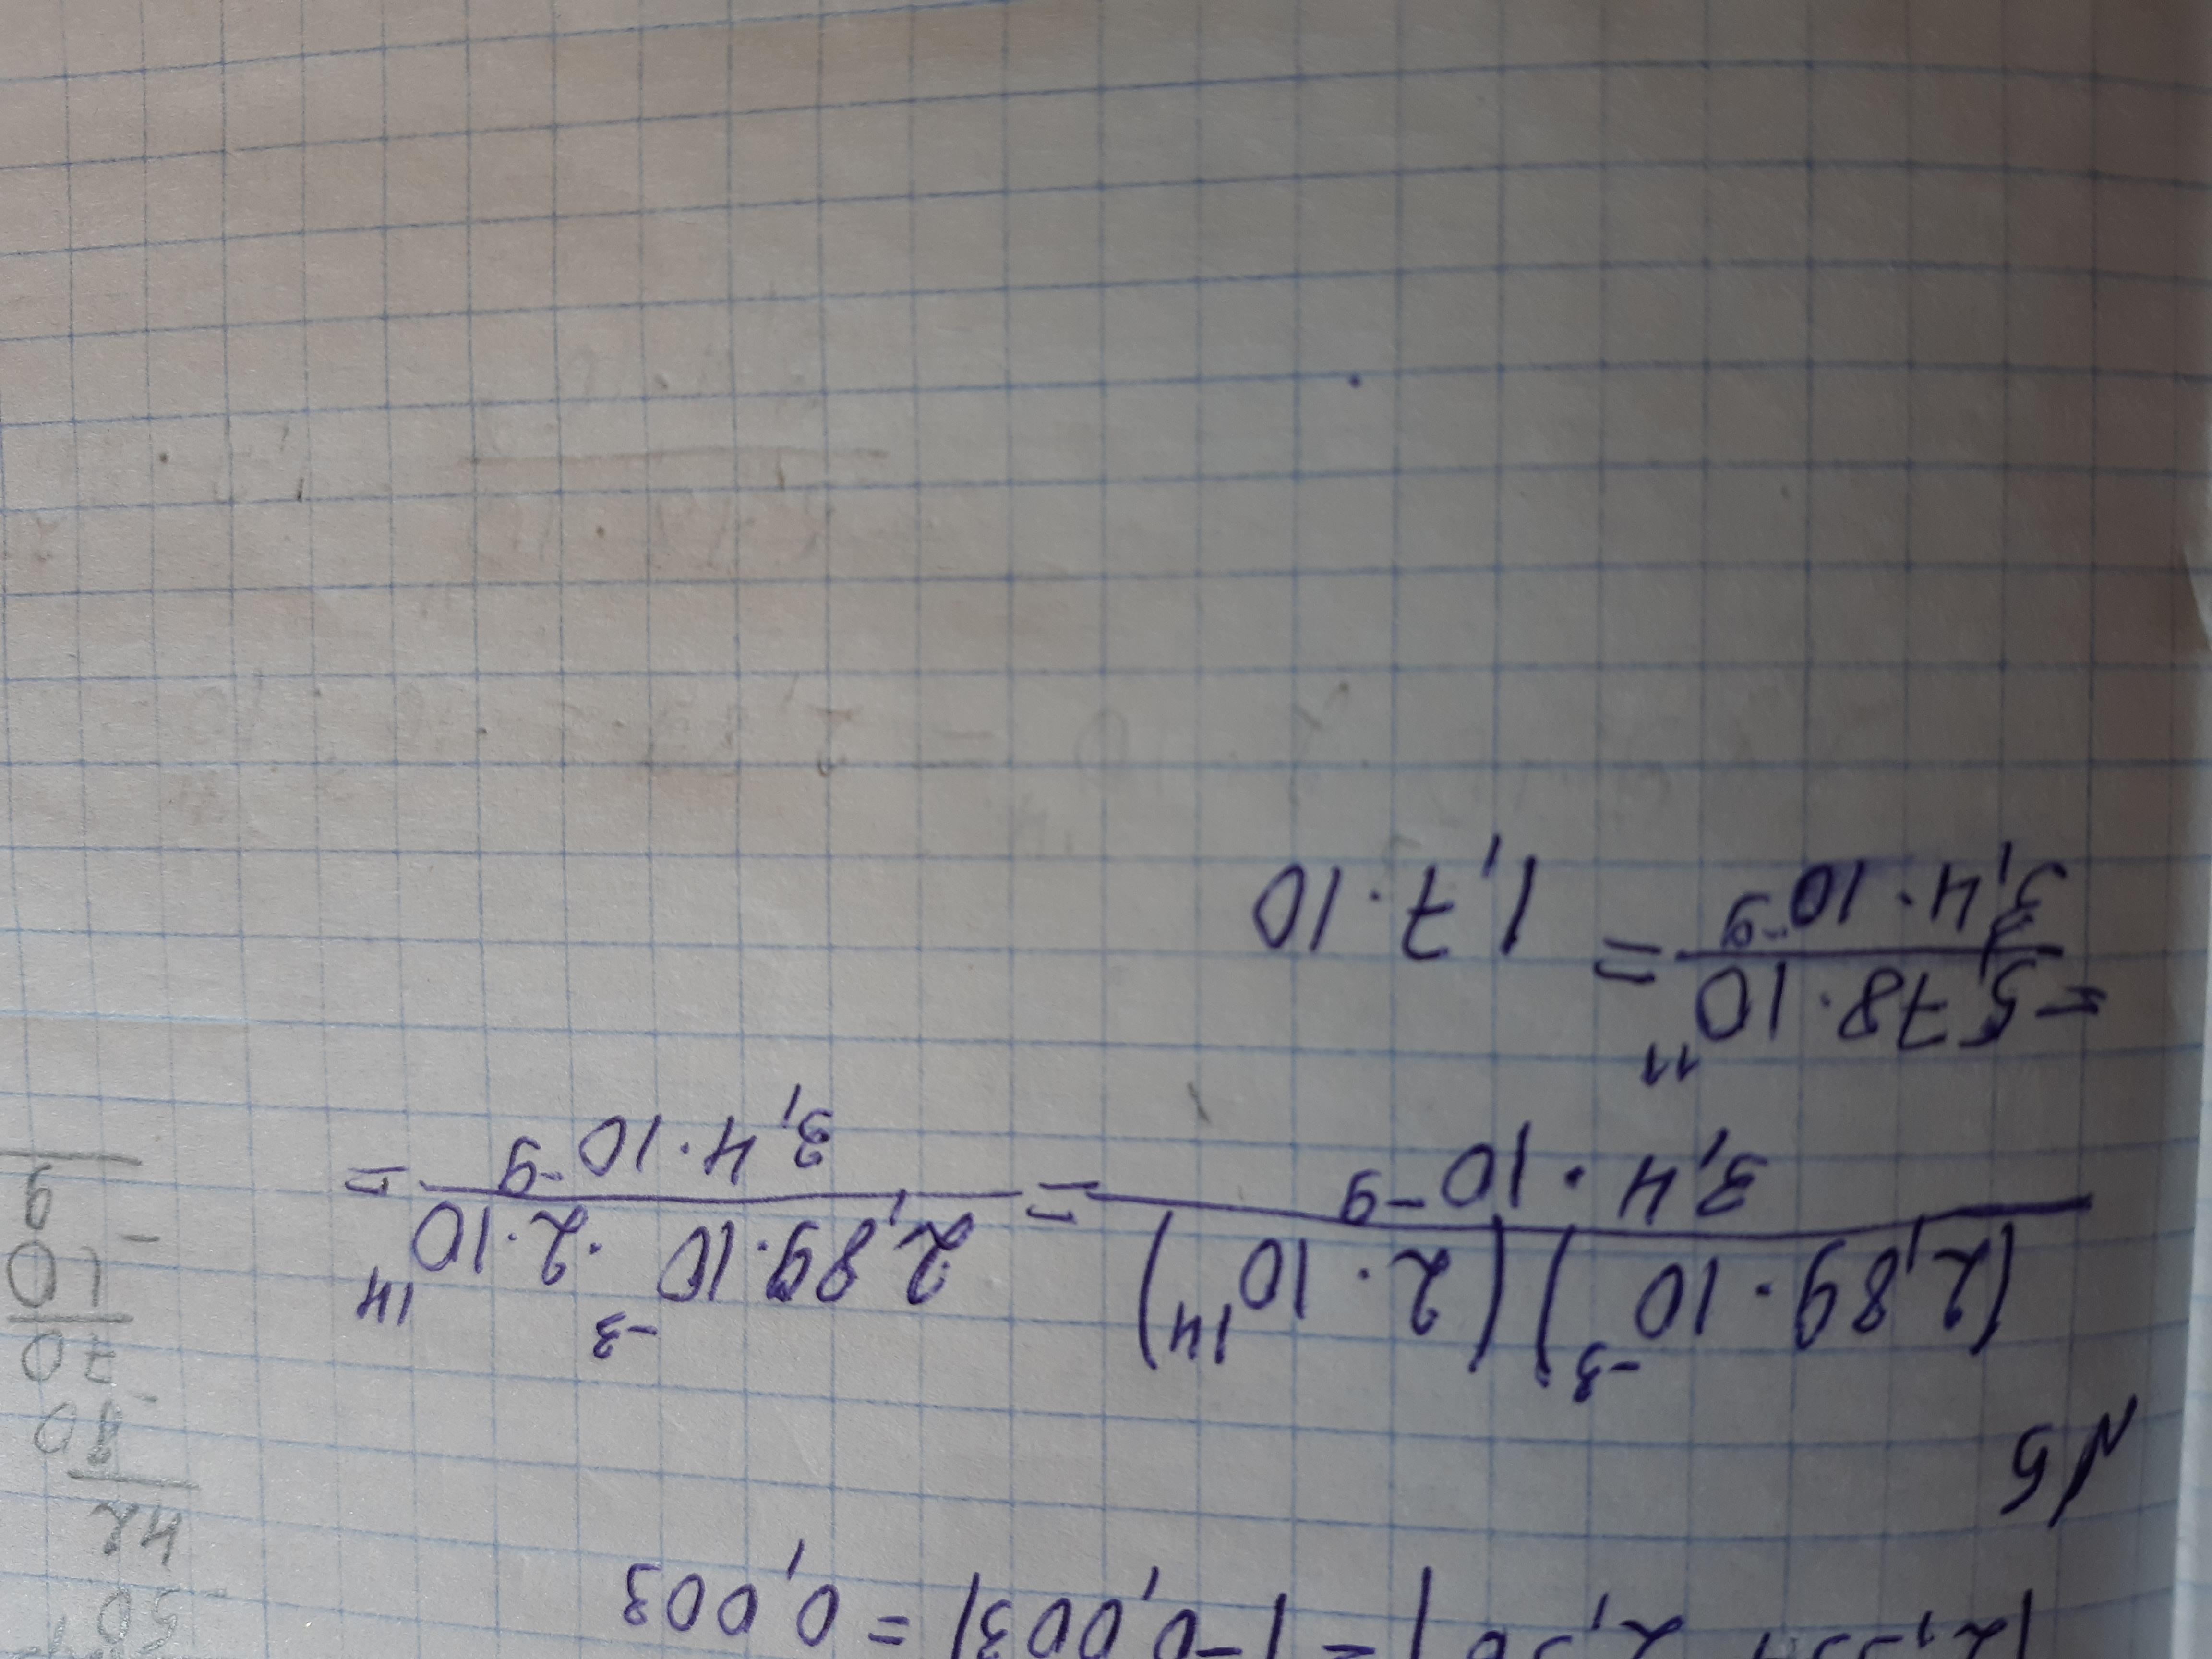 = |-0,003| = 0,003
№5
(2,89 · 10⁻³)(2 · 10¹⁴) / 3,4 · 10⁻⁹ = 2,89 · 10⁻³ · 2 · 10¹⁴ / 3,4 · 10⁻⁹ =
= 5,78 · 10¹¹ / 3,4 · 10⁻⁹ = 1,7 · 10
50
42
80
70
10
9